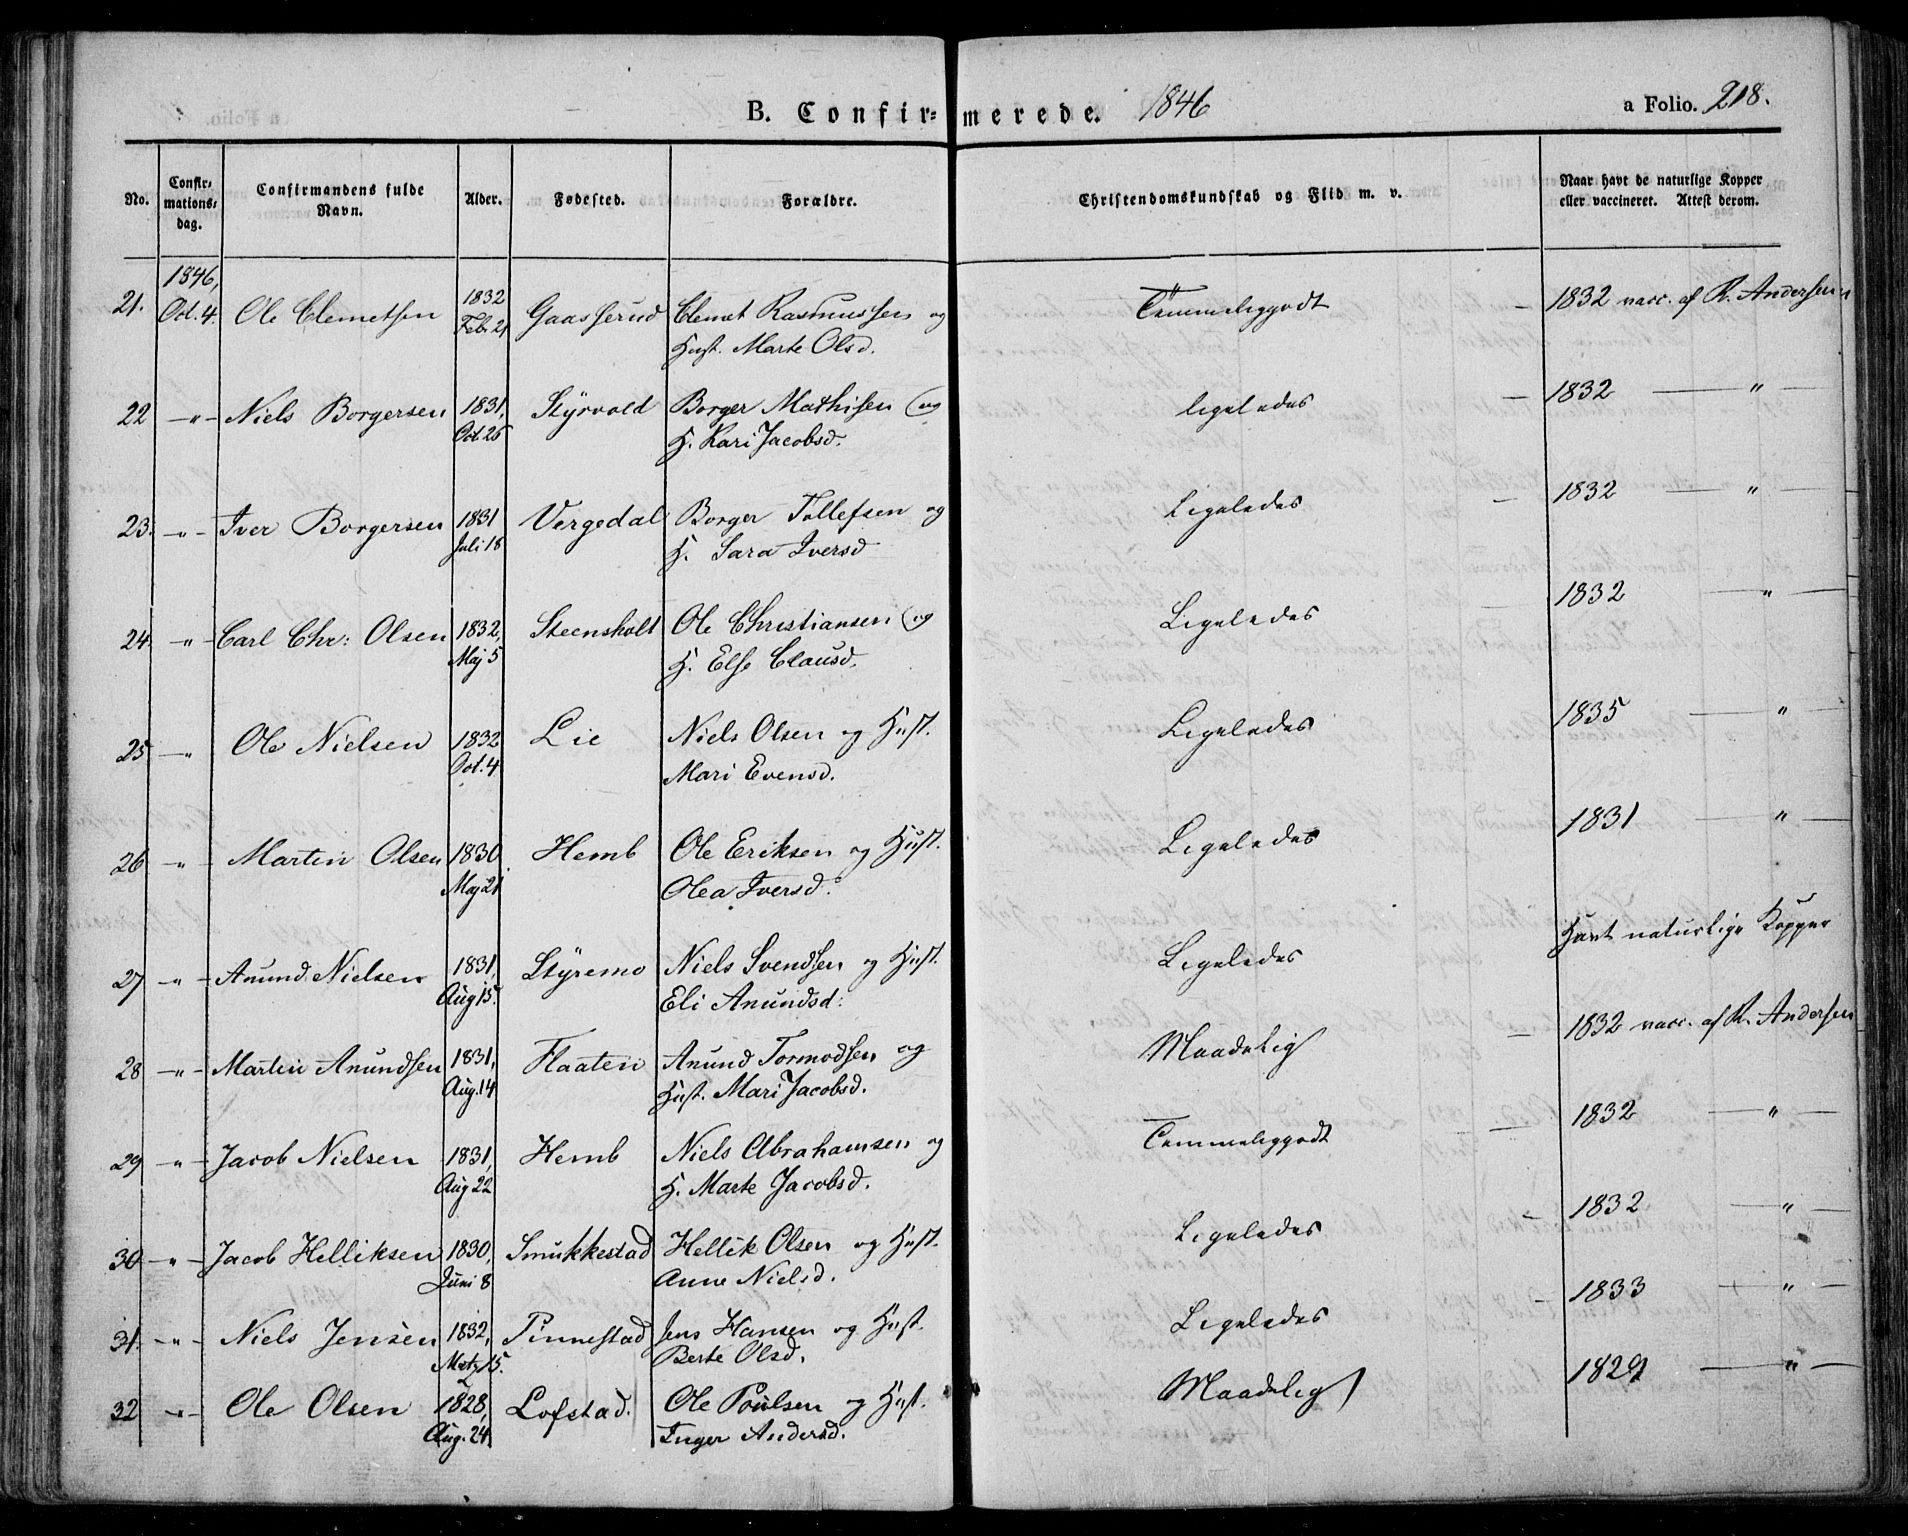 B. Confir= merede. 1846 a Folio. 218.
No. Confir=mations=dag. Confirmandens fulde Navn. Alder. Fødested. Forældre. Christendomskundskab og Flid m. v. Naar havt de naturlige Kopper eller vaccineret. Attest derom.
1846,
21. Oct. 4. Ole Clemetsen 1832 Feb. 21 Gaasserud Clemet Rasmussen og — 1832 vacc. af R. Andersen
Hust. Marte Olsd. Temmeliggodt
22 —"— Niels Borgersen 1831, Oct. 25 Styrvold Borger Mathisen og ligeledes — 1832 — " —
H. Kari Jacobsd.
23. —"— Iver Borgersen 1831 Juli 18 Vergedal Borger Tollefsen og Ligeledes — 1832 — " —
H. Sara Iversd
24. —"— Carl Chr: Olsen 1832, Maj 5 Steensholt Ole Christiansen og Ligeledes — 1832 — " —
H. Else Clausd.
25 —"— Ole Nielsen 1832 Oct. 4 Lie Niels Olsen og Hust. Ligeledes 1835 — " —
Mari Evensd.
26 —"— Martin Olsen 1830 Maj 21 Hemb Ole Eriksen og Hust. Ligeledes 1831 — " —
Olea Iversd.
27 —"— Anund Nielsen 1831, Aug 15. Styremo Niels Svendsen og Hust. Ligeledes Havt naturlige Kopper
Eli Anundsd:
28 —"— Martin Anundsen 1831, Aug. 14 Flaaten Anund Tormodsen og Maadelig — 1832 vacc. af R. Andersen
Hust. Mari Jacobsd.
29 —"— Jacob Nielsen 1831, Aug 22 Hemb Niels Abrahamsen og Temmeliggodt — 1832 — " —
H. Marte Jacobsd.
30 —"— Jacob Helliksen 1830, Juni 8 Smukkestad Hellik Olsen og Hust. Ligeledes - 1832 — " —
Anne Nielsd.
31. —"— Niels Jensen 1832, Martz 15. Pinnestad Jens Hansen og Hust. Ligeledes - 1833 — " —
Berte Olsd.
32 —"— Ole Olsen 1828, Aug. 24. Lofstad. Ole Poulsen og Hust. Maadelig 1829 — " —
Inger Andersd.